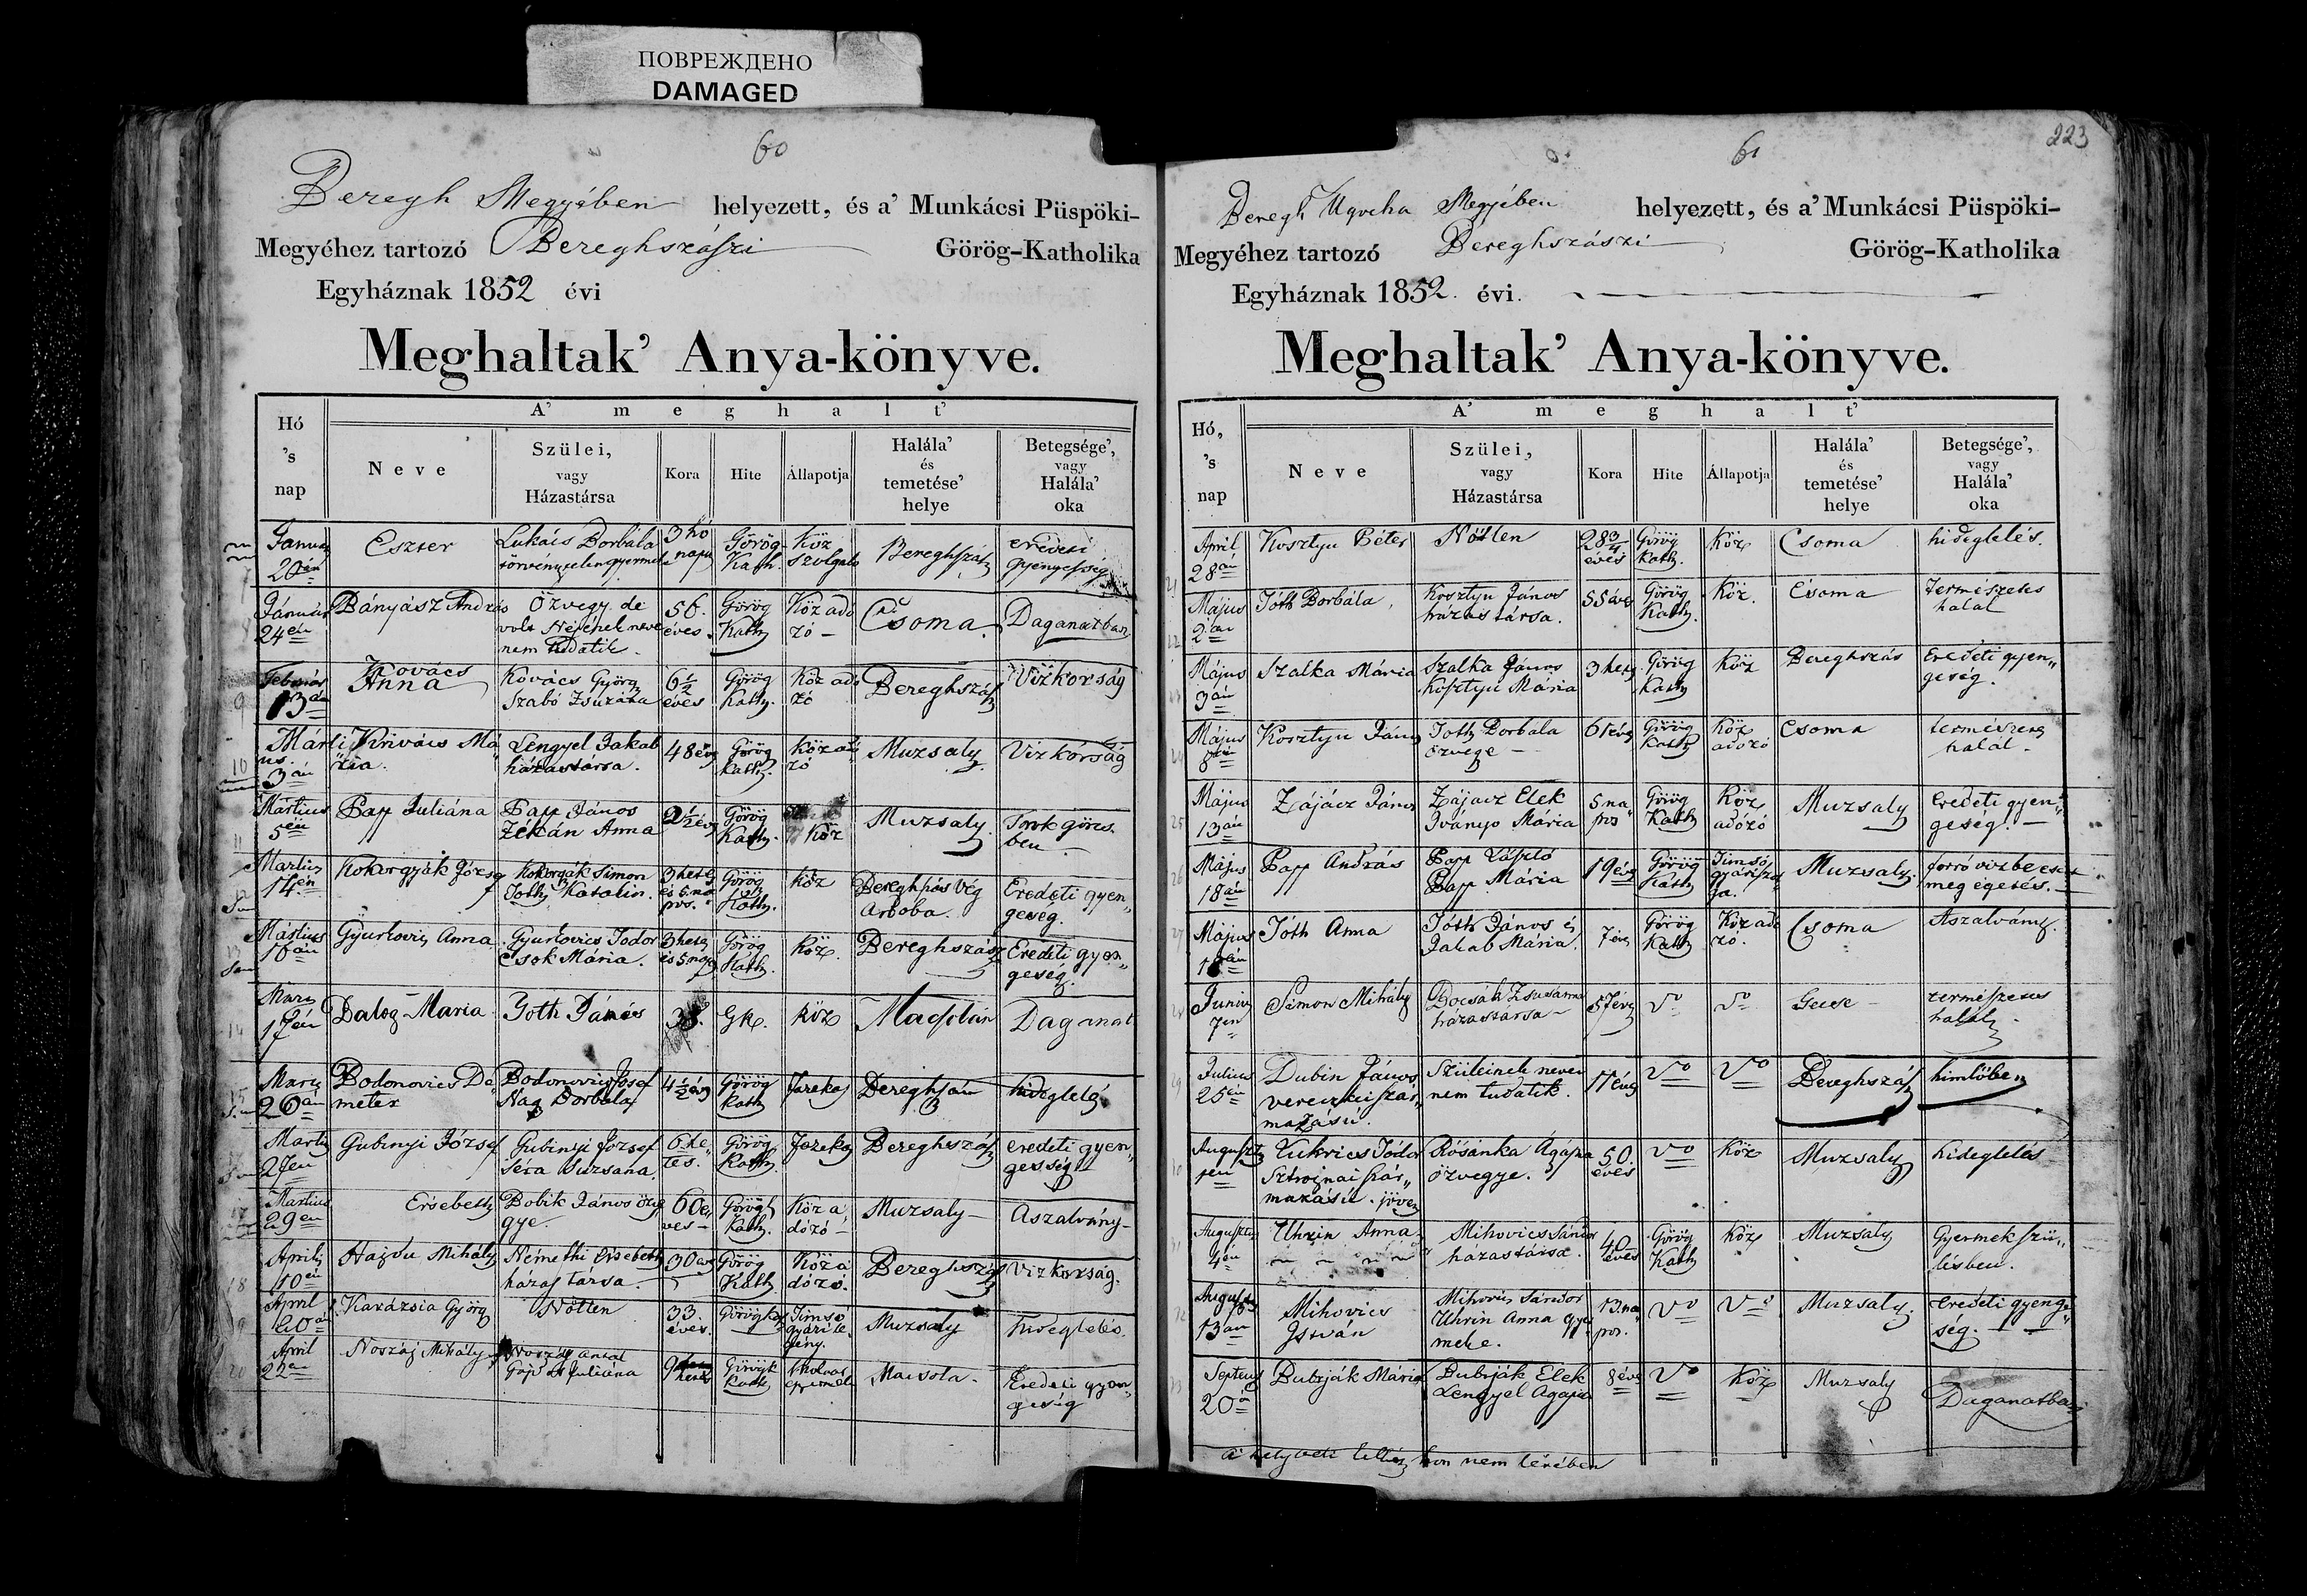 ПОВРЕЖДЕНО
DAMAGED
60
Beregh Megyében helyezett, és a' Munkácsi Püspöki-
Megyéhez tartozó Bereghszászi Görög-Katholika
Egyháznak 1852 évi
Meghaltak' Anya-könyve.
Hó 's nap
A' meghalt'
Neve
Szülei, vagy Házastársa
Kora
Hite
Állapotja
Halála' és temetése' helye
Betegsége', vagy Halála' oka
Január 20án Eszter Lukács Borbála törvénytelen gyermeke 3 hó napu Görög Kath. Köz szolgáló Bereghszász eredeti gyengeség
Január 24én Bányász András Özvegy de volt Nejének neve nem tudatik. 56. éves Görög Kath Köz adó zó Csoma Daganatban
Február 13án Kovács Anna Kovács György Szabó Zsuzána 6½ éves Görög Kath. Köz adó zó Bereghszász Vizkorság
Mártius 3án Krivács Má ria. Lengyel Jakab házastársa. 48 évs Görög Kath. Köz adó zó Muzsaly Viz kórság
Mártius 5én Papp Juliána Papp János Zékán Anna 2½ évs Görög Kath. Köz Muzsaly. Torok görcs ben
Martius 14én Kokorgyák József Kokorgyák Simon Tóth Katalin. 3 hetes és 5 na pos. Görög Kath. köz Bereghszász Vég Ardoba. Eredeti gyen„ geség.
Mártius 16án Gyurkovics Anna Gyurkovics Todor Csok Mária. 3 hetes és 5 napos Görög Kath. Köz. Bereghszász Eredeti gyen„ geség.
Mart 17én Balog Maria Toth János 38. GK. köz Macsolán Daganat
Marti 26án Bodonovics De meter Bodonovics Josef Nag Borbála 4½ évs Görög Kath Fazekas Bereghszász hideglelés
Marti 27én Gubinyi József Gubinyi József Séra Susana. 6 he„ tes. Görög Kath. Fazekas Bereghszász eredeti gyen„ gesség
Martius 29én Ersebeth Bobik János özve gye. 60 é ves Görög Kath. Köz a dózó Muzsaly Aszalvány
April 10én Hajdu Mihály Némethi Ersebeth házas társa. 30 Görög Kath Köz a dózó. Bereghszász Vizkorság.
April 20án Karázsia György Nőtlen 33. éves. Görög Kath Timsó gyári le gény. Muzsaly hideglelés.
April 22én Noszáj Mihály Noszáj Antal Juliána 9 hetes Görög Kath Macsola. Eredeti gyen„ geség
223
61
Beregh Ugocha Megyében helyezett, és a' Munkácsi Püspöki-
Megyéhez tartozó Bereghszászi Görög-Katholika
Egyháznak 1852. évi.
Meghaltak' Anya-könyve.
Hó, 's nap
A' meghalt'
Neve
Szülei, vagy Házastársa
Kora
Hite
Állapotja
Halála' és temetése' helye
Betegsége', vagy Halála' oka
April 28án Kosztyu Péter Nőtlen 28¾ éves Görög Kath. Köz Csoma hideglelés.
Május 2án Tóth Borbála, Kosztyu János házas társa. 55 éves Görög Kath. Köz. Csoma természetes halál
Május 3án Szalka Mária Szalka János Kosztyu Mária 3 hets Görög Kath Köz Bereghszás Eredeti gyen„ geség.
Május 8án Kosztyu János Toth Borbala özvege 61 évs Görög Kath Köz adózó Csoma természetes halál.
Május 13án Zájácz János Zájacz Elek Iványo Mária 5 na pos Görög Kath Köz adózó Muzsaly Eredeti gyen„ geség.
Május 18án Papp András Papp László Papp Mária 19 évs Görög Kath Timsó gyári szol ga. Muzsaly. forró vizbe eset meg égetés.
Május 18án Tóth Anna Tóth János és Jakab Mária. 7 évs Görög Kath Köz adó zó. Csoma Aszalvány.
Junius 7én Simon Mihály Bocsák Zsusánna házastársa 57 évs vo vo Gecse természetes halál
Julius 25én Dubin János vereczkei szár„ mazású. Szüleinek nevei nem tudatik. 17 évs vo vo Bereghszász himlőben
Auguszt 1én Lukrics Tódor Sztrojnai szár„ mazású. Rósánka Ágápia özvegye. 50. éves vo Köz Muzsaly hideglelés
Auguszt 4én Uhrin Anna Mihovics Sándor házastársa. 40 éves Görög Kath Köz Muzsaly Gyermek szü„ lésben.
Auguszt 13án Mihovics István Mihovics Sándor Uhrin Anna gyer meke. 13. na pos. vo vo Muzsaly. eredeti gyenge„ ség.
Septem 20á Bubrják Mária Bubrják Elek Lengyel Agapia 8 évs vo Köz Muzsaly Daganatban